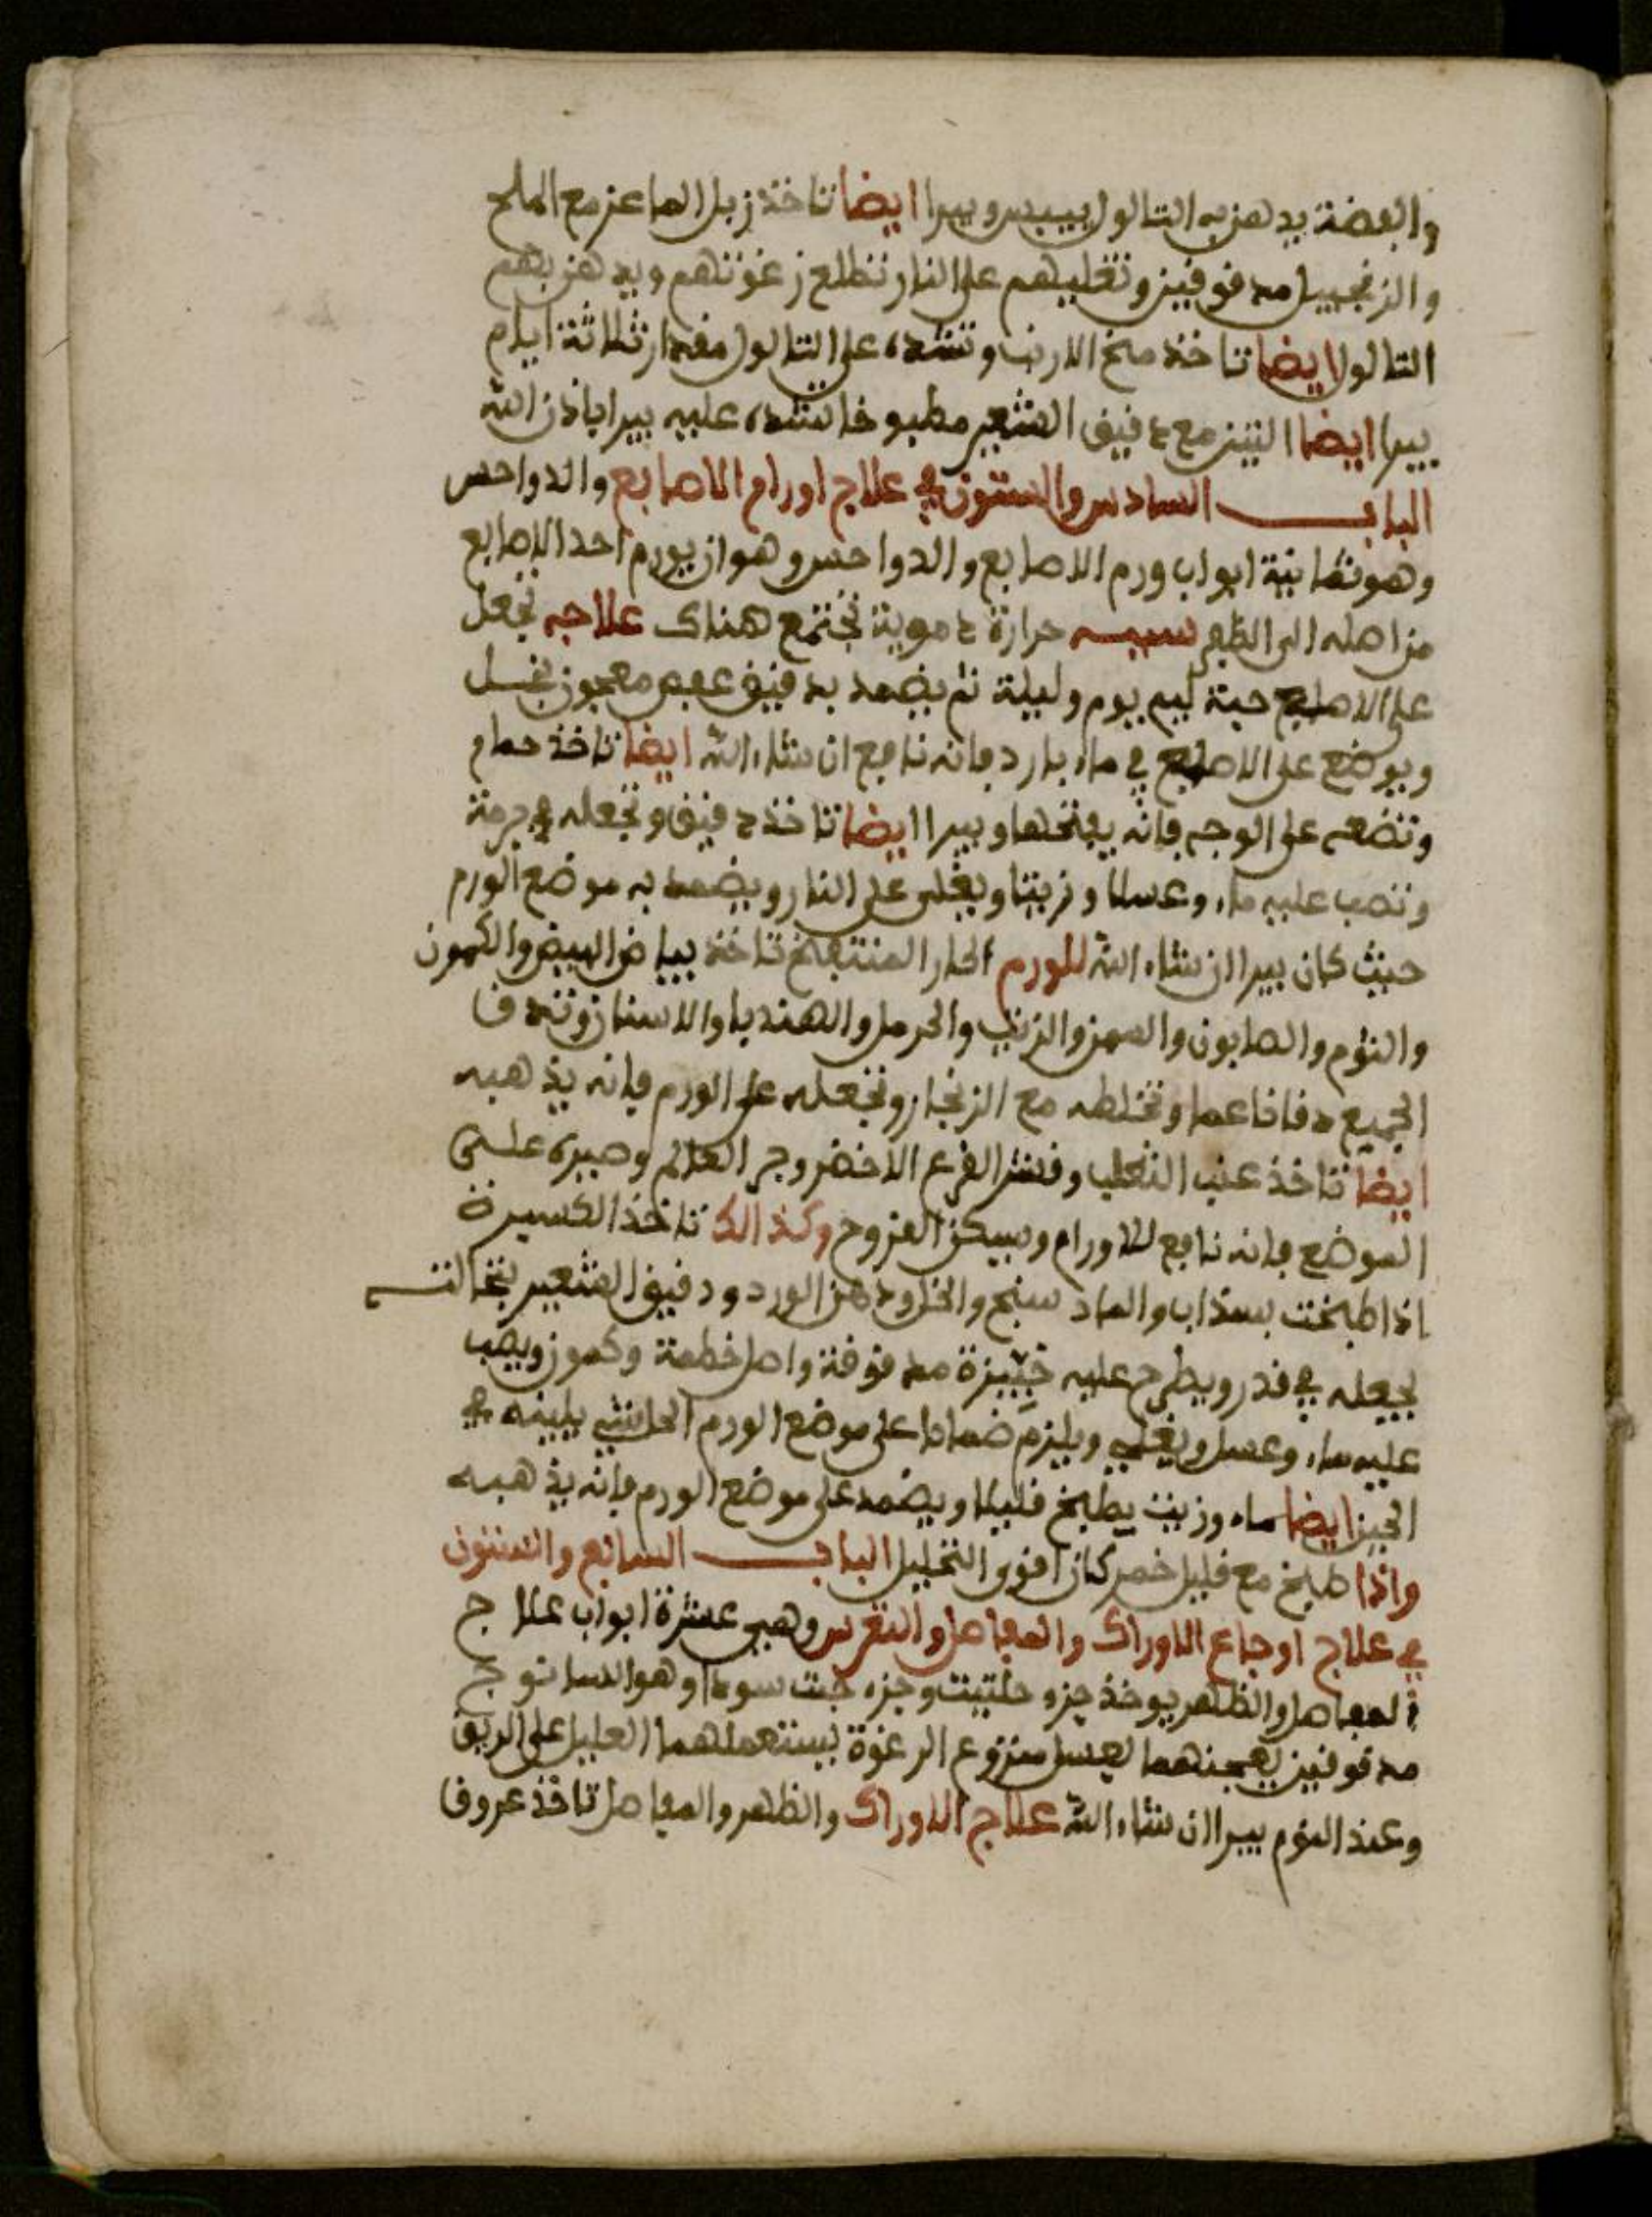 والفضة يدهن به التالول ييبس ويبرا ايضا تاخذ زبل الماعز مع الملح
والزنجبيل مدقوقين وتغليهم على النار تطلع زغوتهم ويدهن بهم
التالول ايضا تاخذ مخ الارنب وتشده على التالول مقدار ثلاثة ايام
يبرا ايضا التين مع دقيق الشعير مطبوخا تشده عليه يبرا باذن الله
الباب السادس والستون في علاج اورام الاصابع والدواحس
وهو ثمانية ابواب ورم الاصابع والدواحس وهو ان يورم احد الاصابع
من اصله الى الظفر سببه حرارة دموية تجتمع هناك علاجه تجعل
على الاصابع حبة ليم يوم وليلة ثم يضمد بدقيق عفص معجون بخل
ويوضع على الاصابع في ماء بارد فانه نافع ان شاء الله ايضا تاخذ حمام
وتضعه على الوجه فانه يفتحها ويبرا ايضا تاخذ دقيق وتجعله في برمة
وتصب عليه ماء وعسلا وزيتا ويغلى على النار ويضمد به موضع الورم
حيث كان يبرا ان شاء الله للورم الحار المنتفخ تاخذ بياض البيض والكمون
والثوم والصابون والسمن والزيت والحرمل والهنديا والاسنان وتدق
الجميع دقا ناعما وتخلطه مع الزنجار وتجعله على الورم فانه يذهبه
ايضا تاخذ عنب الثعلب وقشر القرع الاخضر وحي العالم وصيره على
الموضع فانه نافع للاورام ويسكن القروح وكذالك تاخذ الكسبرة
اذا طبخت بسذاب والماد سنج والخل ودهن الورد ودقيق الشعير بنخالته
يجعله في قدر ويطرح عليه خبيزة مدقوقة واصل خطمة وكمون ويصب
عليه ماء وعسل ويغلى ويلزم ضمادا على موضع الورم الحار يلينه في
الحين ايضا ماء وزيت يطبخ قليلا ويضمد على موضع الورم فانه يذهبه
واذا طبخ مع قليل خمر كان اقوى التحليل الباب السابع والستون
في علاج اوجاع الاوراك والمفاصل والنقرس وهي عشرة ابواب علاج
المفاصل والظهر يوخذ جزء حلتيت وجزء حبت سودا وهو السانوج
مدقوقين يعجنهما لعسل منزوع الرغوة يستعملهما العليل على الريق
وعند النوم يبرا ان شاء الله علاج الاوراك والظهر والمفاصل تاخذ عروق